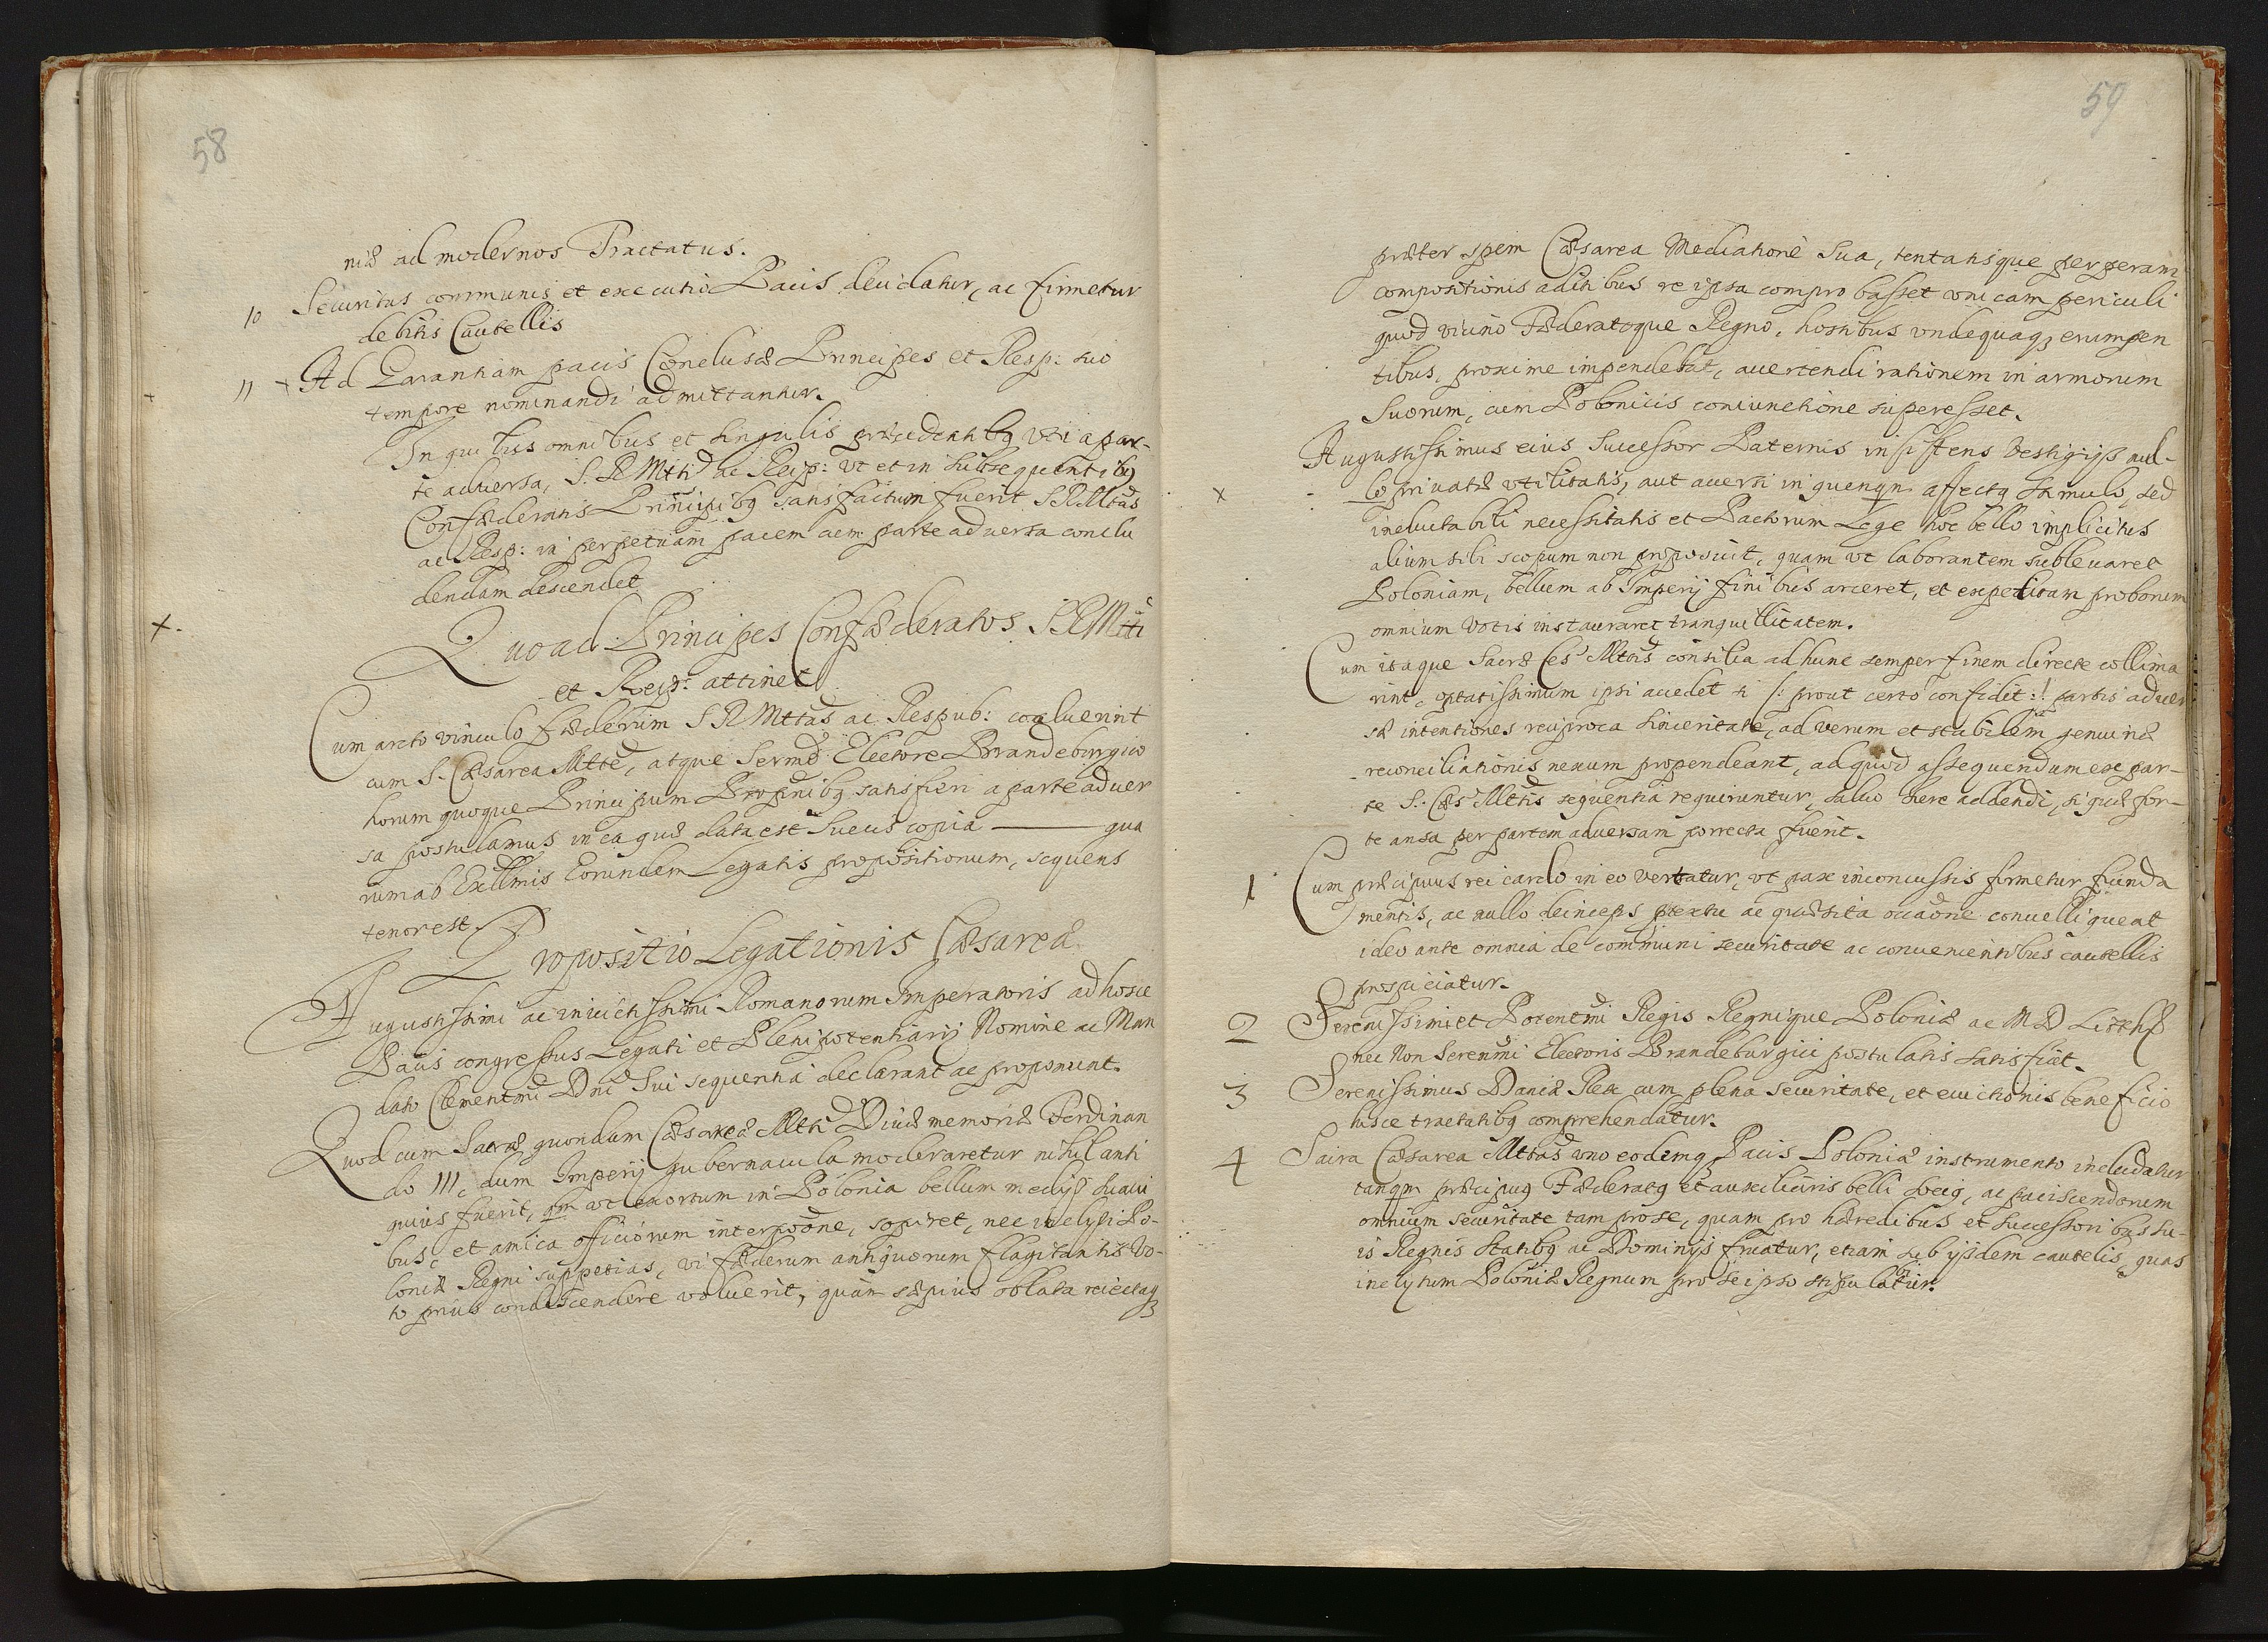 58
niæ ad modernos Tractatus.
10 Securitas communis et executio Pacis deducatur, ac firmetur
debitis Cautellis
11 + Ad Garantiam pacis Conclusæ Principes et Resp: suo
tempore nominandi admittantur.
In quibus omnibus et singulis præcedentibq vti a par-
te aduersa, S. R Mtti ac Reip: vt et in subsequentibq
Confæderatis Principibq satisfactum fuerit S R Mttas
ac Resp: in perpetuam pacem cum parte aduersa conclu
dendam descendet
Quoad Principes Confæderatos S R Mtti
et Reip: attinet
Cum arcto vinculo fæderum S R Mttas ac Respub: coaluerint
cum S. Cæsarea Mtte, atque Sermo Electore Brandeburgico
horum quoque Principum Propnibq satisfieri a parte aduer
sa postulamus in ea quæ data est Suecis copia ——— qua
rum ab Exllmis Eorundem Legatis propositionum, sequens
tenor est.
Propositio Legationis Cæsareæ
Augustissimi ac inuictissimi Romanorum Imperatoris ad hosce
Pacis congressus Legati et Plenipotentiarij Nomine ac Man
dato Clementmi Dni Sui sequentia declarant ac proponunt.
Quod cum Sacræ quondam Cæsareæ Mtti Diuæ memoriæ Ferdinan
do III, dum Imperij gubernacula moderaretur nihil anti
quius fuerit, qm vt exortum in Polonia bellum medijs suaui
bus, et amica officiorum interpone, sopiret, nec inclyti Po-
loniæ Regni suppetias, vi fæderum antiquorum flagitantis vo-
to prius condescendere voluerit, quàm sæpius oblata reiectaq
59
præter spem Cæsarea Mediatione sua, tentatisque perperam
compositionis aditibus re ipsa comprobasset vnicam periculi
quod vicino Fæderatoque Regno, hostibus vndequaq erumpen
tibus, proxime impendebat, auertendi rationem in armorum
Suorum, cum Polonicis coniunctione superesset.
Augustissimus eius Successor Paternis insistens vestigijs nul-
lo priuatæ vtilitatis, aut auersi in quenqn affectq stimulo, sed
ineluctabili necessitatis et Pactorum Lege hoc bello implicitus
alium sibi scopum non proposuit, quam vt laborantem subleuaret
Poloniam, bellum ab Imperij finibus arceret, et expeditam proborum
omnium votis instauraret tranquillitatem.
Cum itaque Sacræ Cæs Mttis consilia ad hunc semper finem directe collima
rint, optatissimum ipsi accedet si /: prout certo confidit :/ partis aduer
sæ intentiones reciproca sinceritate, ad verum et stabilem genuinæ
reconciliationis nexum propendeant, ad quod assequendum ex par-
te S. Cæs Mttis sequentia requiruntur, saluo iure addendi, si quæ for-
te ansa per partem aduersam porrecta fuerit.
1 Cum præcipuus rei cardo in eo vertatur, vt pax inconcussis firmetur funda
mentis, ac nullo deinceps prextu ac quæsita occaone conuelli queat
ideo ante omnia de communi securitate ac conuenientibus cautellis
prospiciatur.
2 Serenissimi et Potentmi Regis Regnique Poloniæ ac M D Litthæ
nec Non Serenmi Electoris Brandeburgici postulatis satisfiat.
3 Serenissimus Daniæ Rex cum plena securitate, et euictionis beneficio
hisce tractatibq comprehendatur.
4 Sacra Cæsarea Mttas vno eodemq Pacis Poloniæ instrumento includatur
tanqm præcipuq Fæderatq et auxiliaris belli sociq, ac paciscendorum
omnium securitate tam pro se, quam pro hæredibus et successoribqs su-
is Regnis statibq ac Dominijs fruatur, etiam sub ijsdem cautelis, quas
inclytum Poloniæ Regnum pro se ipso stipulabitur.